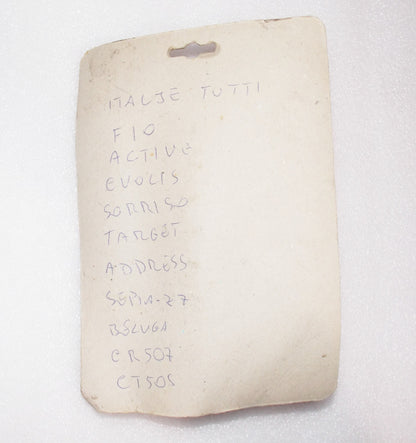 ITALJE TUTTI
FIO
ACTIVE
EVOLIS
SORRISO
TARGET
ADDRESS
SEPIA-ZZ
BELUGA
CR507
CT50S